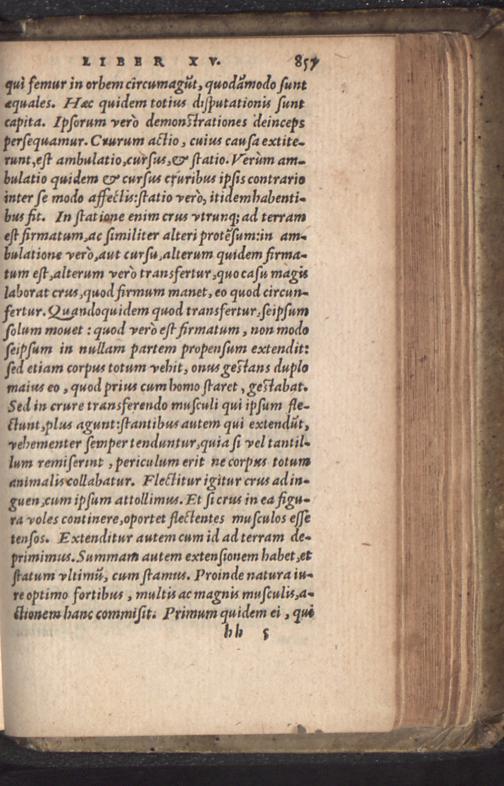 LIBER XV. 857
qui femur in orbem circumagũt, quodãmodo sunt
æquales. Hæc quidem totius disputationis sunt
capita. Ipsorum verò demonstrationes deinceps
persequamur. Crurum actio, cuius causa extite-
runt, est ambulatio, cursus, & statio. Verùm am-
bulatio quidem & cursus cruribus ipsis contrario
inter se modo affectis: statio verò, itidem habenti-
bus fit. In statione enim crus vtrunq; ad terram
est firmatum, ac similiter alteri protẽsum: in am-
bulatione verò, aut cursu, alterum quidem firma-
tum est, alterum verò transfertur, quo casu màgis
laborat crus, quod firmum manet, eo quod circun-
fertur. Quandoquidem quod transfertur, seipsum
solum mouet: quod verò est firmatum, non modo
seipsum in nullam partem propensum extendit:
sed etiam corpus totum vehit, onus gestans duplo
maius eo, quod prius cum homo staret, gestabat.
Sed in crure transferendo musculi qui ipsum fle-
ctunt, plus agunt: stantibus autem qui extendũt,
vehementer semper tenduntur, quia si vel tantil-
lum remiserint, periculum erit ne corpus totum
animalis collabatur. Flectitur igitur crus ad in-
guen, cum ipsum attollimus. Et si crus in ea figu-
ra voles continere, oportet flectentes musculos esse
tensos. Extenditur autem cum id ad terram de-
primimus. Summam autem extensionem habet, et
statum vltimũ, cum stamus. Proinde natura iu-
re optimo fortibus, multis ac magnis musculis, a-
ctionem hanc commisit. Primum quidem ei, qui
hh 5